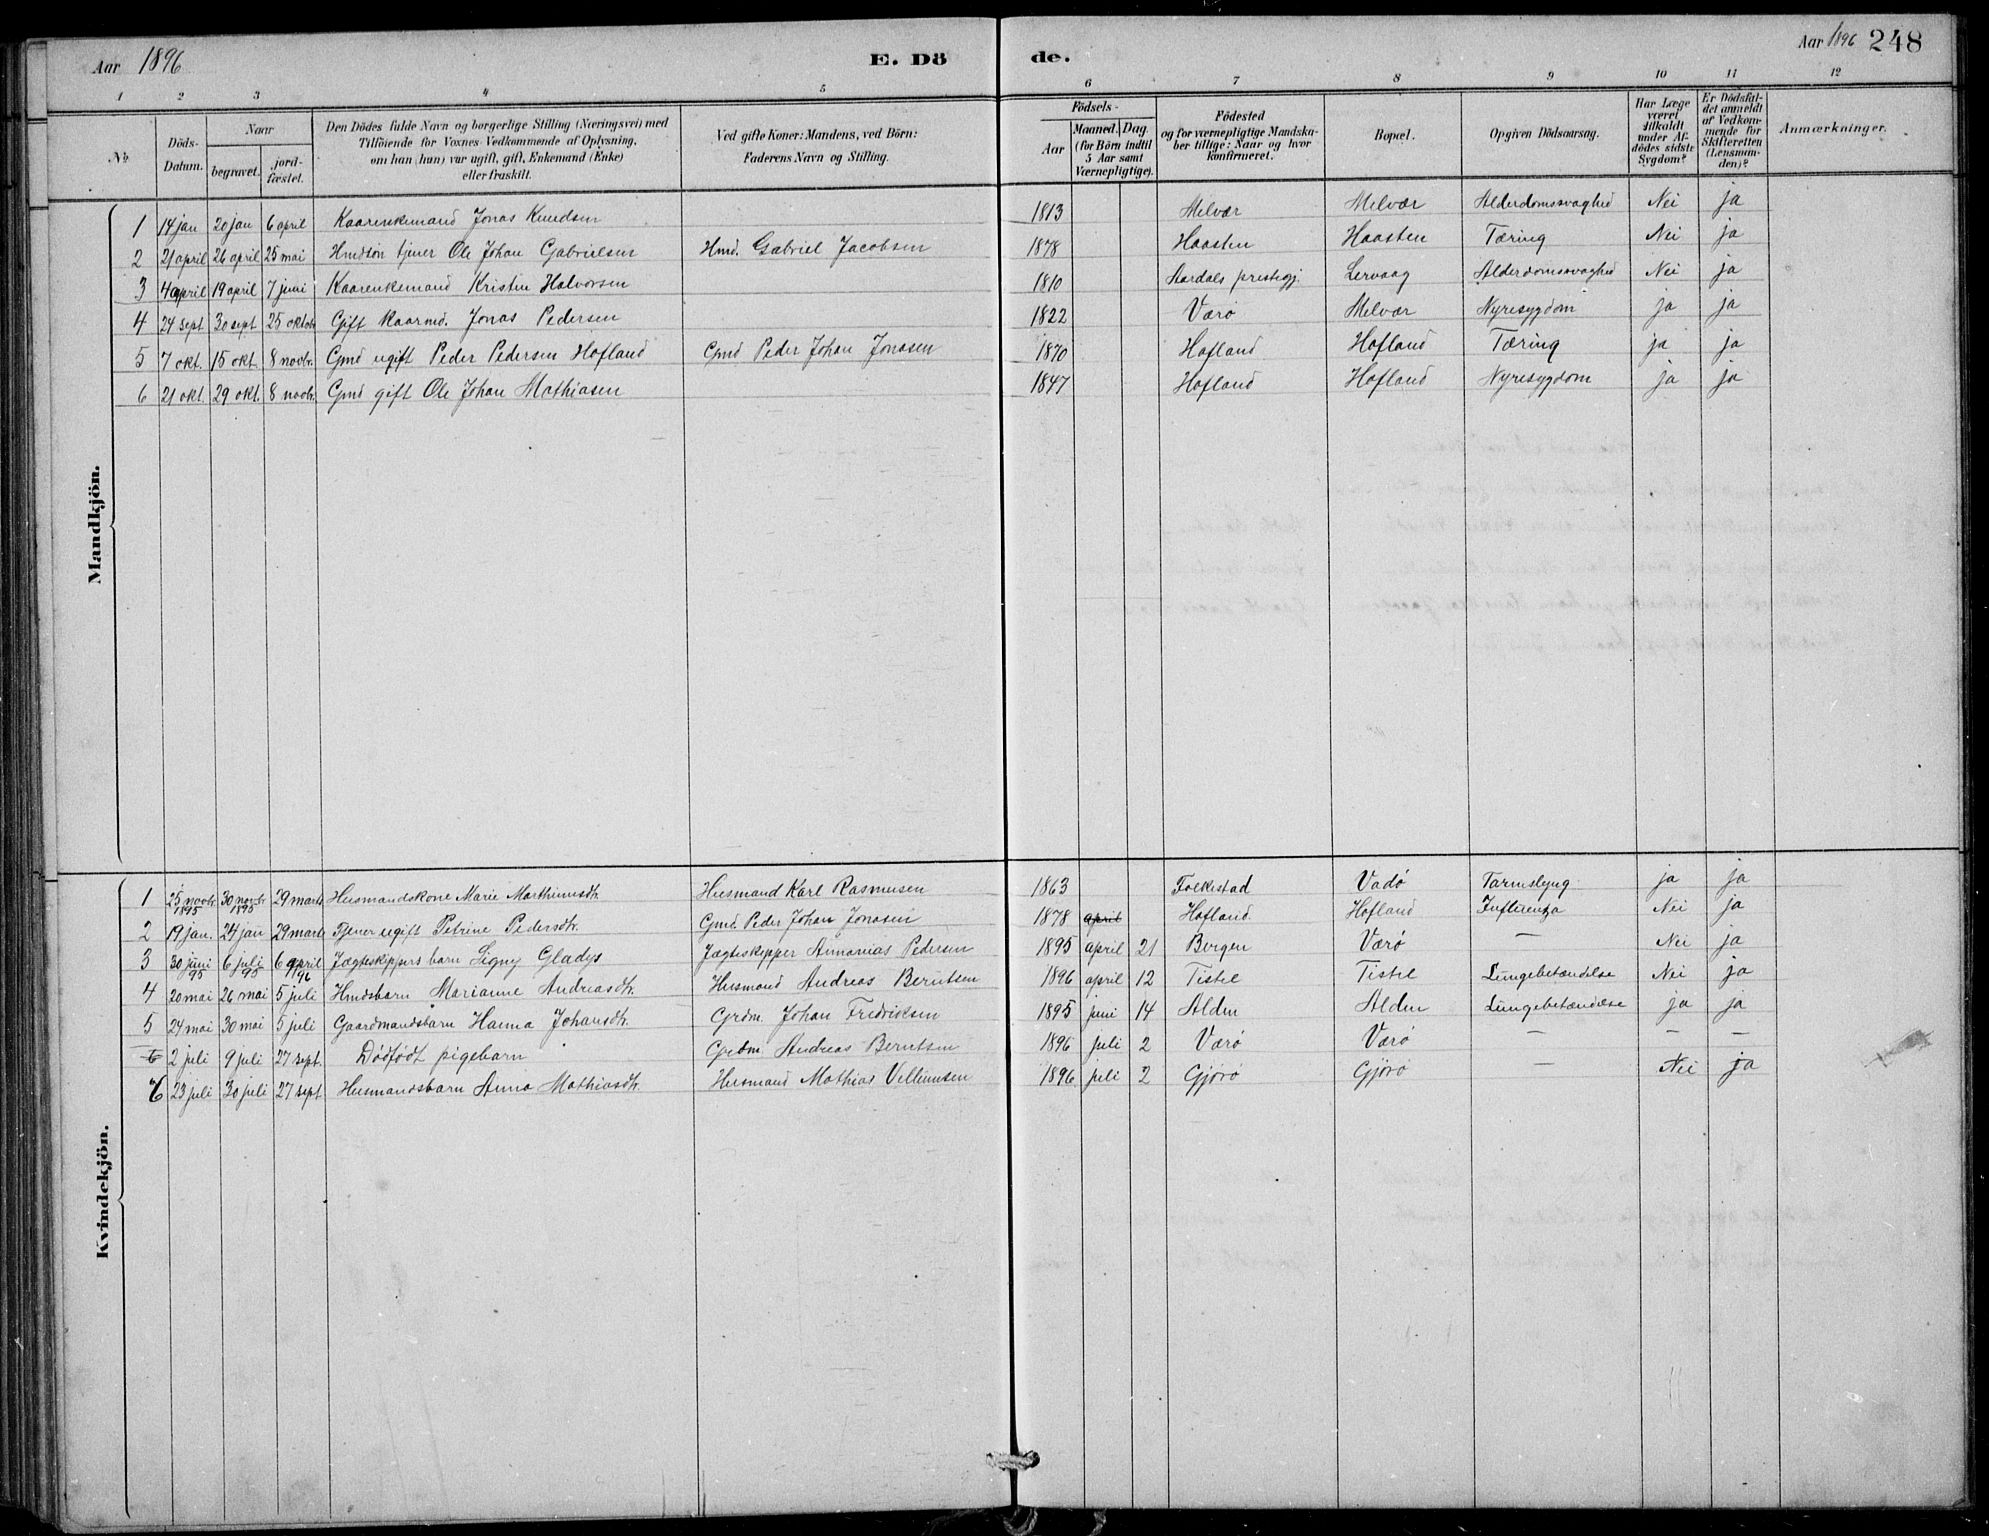 Aar 1896 E. Dö de. Aar 1896 248
1 2 3 4 5 6 7 8 9 10 11 12
No. Döds-Datum. Naar begravet. jordfæstet. Den Dödes fulde Navn og borgerlige Stilling (Næringsvei) med Tilföiende for Voxnes Vedkommende af Oplysning, om han (hun) var ugift, gift, Enkemand (Enke) eller fraskilt. Ved gifte Koner: Mandens, ved Börn: Faderens Navn og Stilling. Födsels- Aar Maaned. Dag. (for Börn indtil 5 Aar samt Værnepligtige). Födested og for værnepligtige Mandskaber tillige: Naar og hvor konfirmeret. Bopæl. Opgiven Dödsaarsag. Har Læge været tilkaldt under Afdödes sidste Sygdom? Er Dödsfaldet anmeldt af Vedkommende for Skifteretten (Lensmanden)? Anmærkninger.
Mandkjön.
1 14 jan 20 jan 6 april Kaarenkemand Jonas Knudsen 1813 Melvær Melvær Alderdomssvaghed Nei ja
2 21 april 26 april 25 mai Hmdsön tjener Ole Johan Gabrielsen Hmd. Gabriel Jacobsen 1878 Haasten Haasten Tæring Nei ja
3 4 april 19 april 7 juni Kaarenkemand Kristen Halvorsen 1810 Aardals prestegj. Lervaag Alderdomssvaghed Nei ja
4 24 sept 30 sept 25 oktob Gift kaarmd. Jonas Pedersen 1822 Værö Melvær Nyresygdom ja ja
5 7 okt. 15 okt. 8 novbr. Gmd ugift Peder Pedersen Hofland Gmd Peder Johan Jonasen 1870 Hofland Hofland Tæring ja ja
6 21 okt. 29 okt. 8 novbr. Gmd gift Ole Johan Mathiasen 1847 Hofland Hofland Nyresygdom ja ja
Kvindekjön.
1 25 novbr. 1895 30 novbr. 1895 29 marts Husmandskone Marie Marthinusdtr. Husmand Karl Rasmusen 1863 Folkestad Vadö Tarmslyng ja ja
2 19 jan. 24 jan 29 marts Tjener ugift Petrine Pedersdtr. Gmd. Peder Johan Jonasen 1878 april Hofland Hofland Influenza Nei ja
3 30 juni 95 6 juli 95 6 april 96 Jægteskippers barn Signy Gladys Jægteskipper Annanias Pedersen 1895 april 21 Bergen Værö — Nei ja
4 20 mai 26 mai 5 juli Hmdsbarn Marianne Andreasdtr. Husmand Andreas Berntsen 1896 april 12 Tistel Tistel Lungebetændelse Nei ja
5 24 mai 30 mai 5 juli Gaardmandsbarn Hanna Johansdtr. Grdm. Johan Fredriksen 1895 juni 14 Alden Alden Lungebetændelse ja ja
6 2 juli 9 juli 27 sept. Dödfödt pigebarn Grdm. Andreas Berntsen 1896 juli 2 Værö Værö — — —
6 23 juli 30 juli 27 sept Husmandsbarn Anna Mathiasdtr. Husmand Mathias Vellumsen 1896 juli 2 Gjörö Gjörö — Nei ja